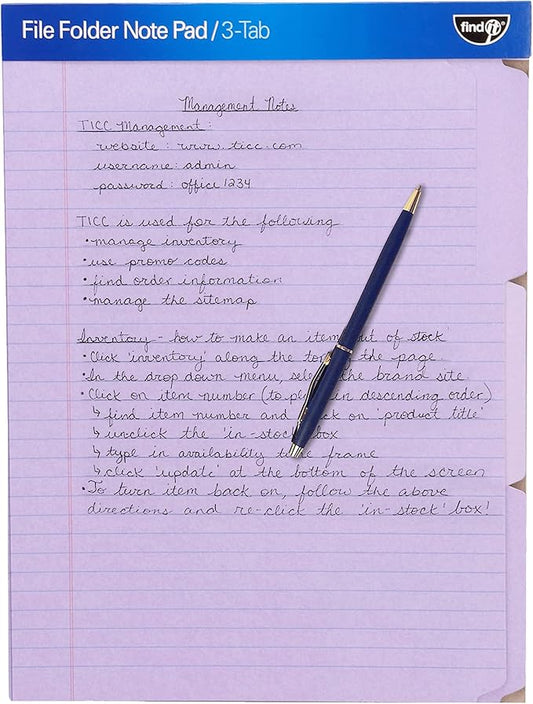 File Folder Note Pad / 3-Tab
find it®
Management Notes
TICC Management:
website : www.ticc.com
username: admin
password: office1234
TICC is used for the following
• manage inventory
• use promo codes
• find order information
• manage the sitemap
Inventory - how to make an item out of stock
• Click 'inventory' along the top the page.
• In the drop down menu, the brand site
• Click on item number (to in descending order)
↳ find item number and on 'product title'
↳ unclick the 'in-stock' box
↳ type in availability frame
↳ click 'update' at the bottom of the screen
• To turn item back on, follow the above
directions and re-click the 'in-stock' box!